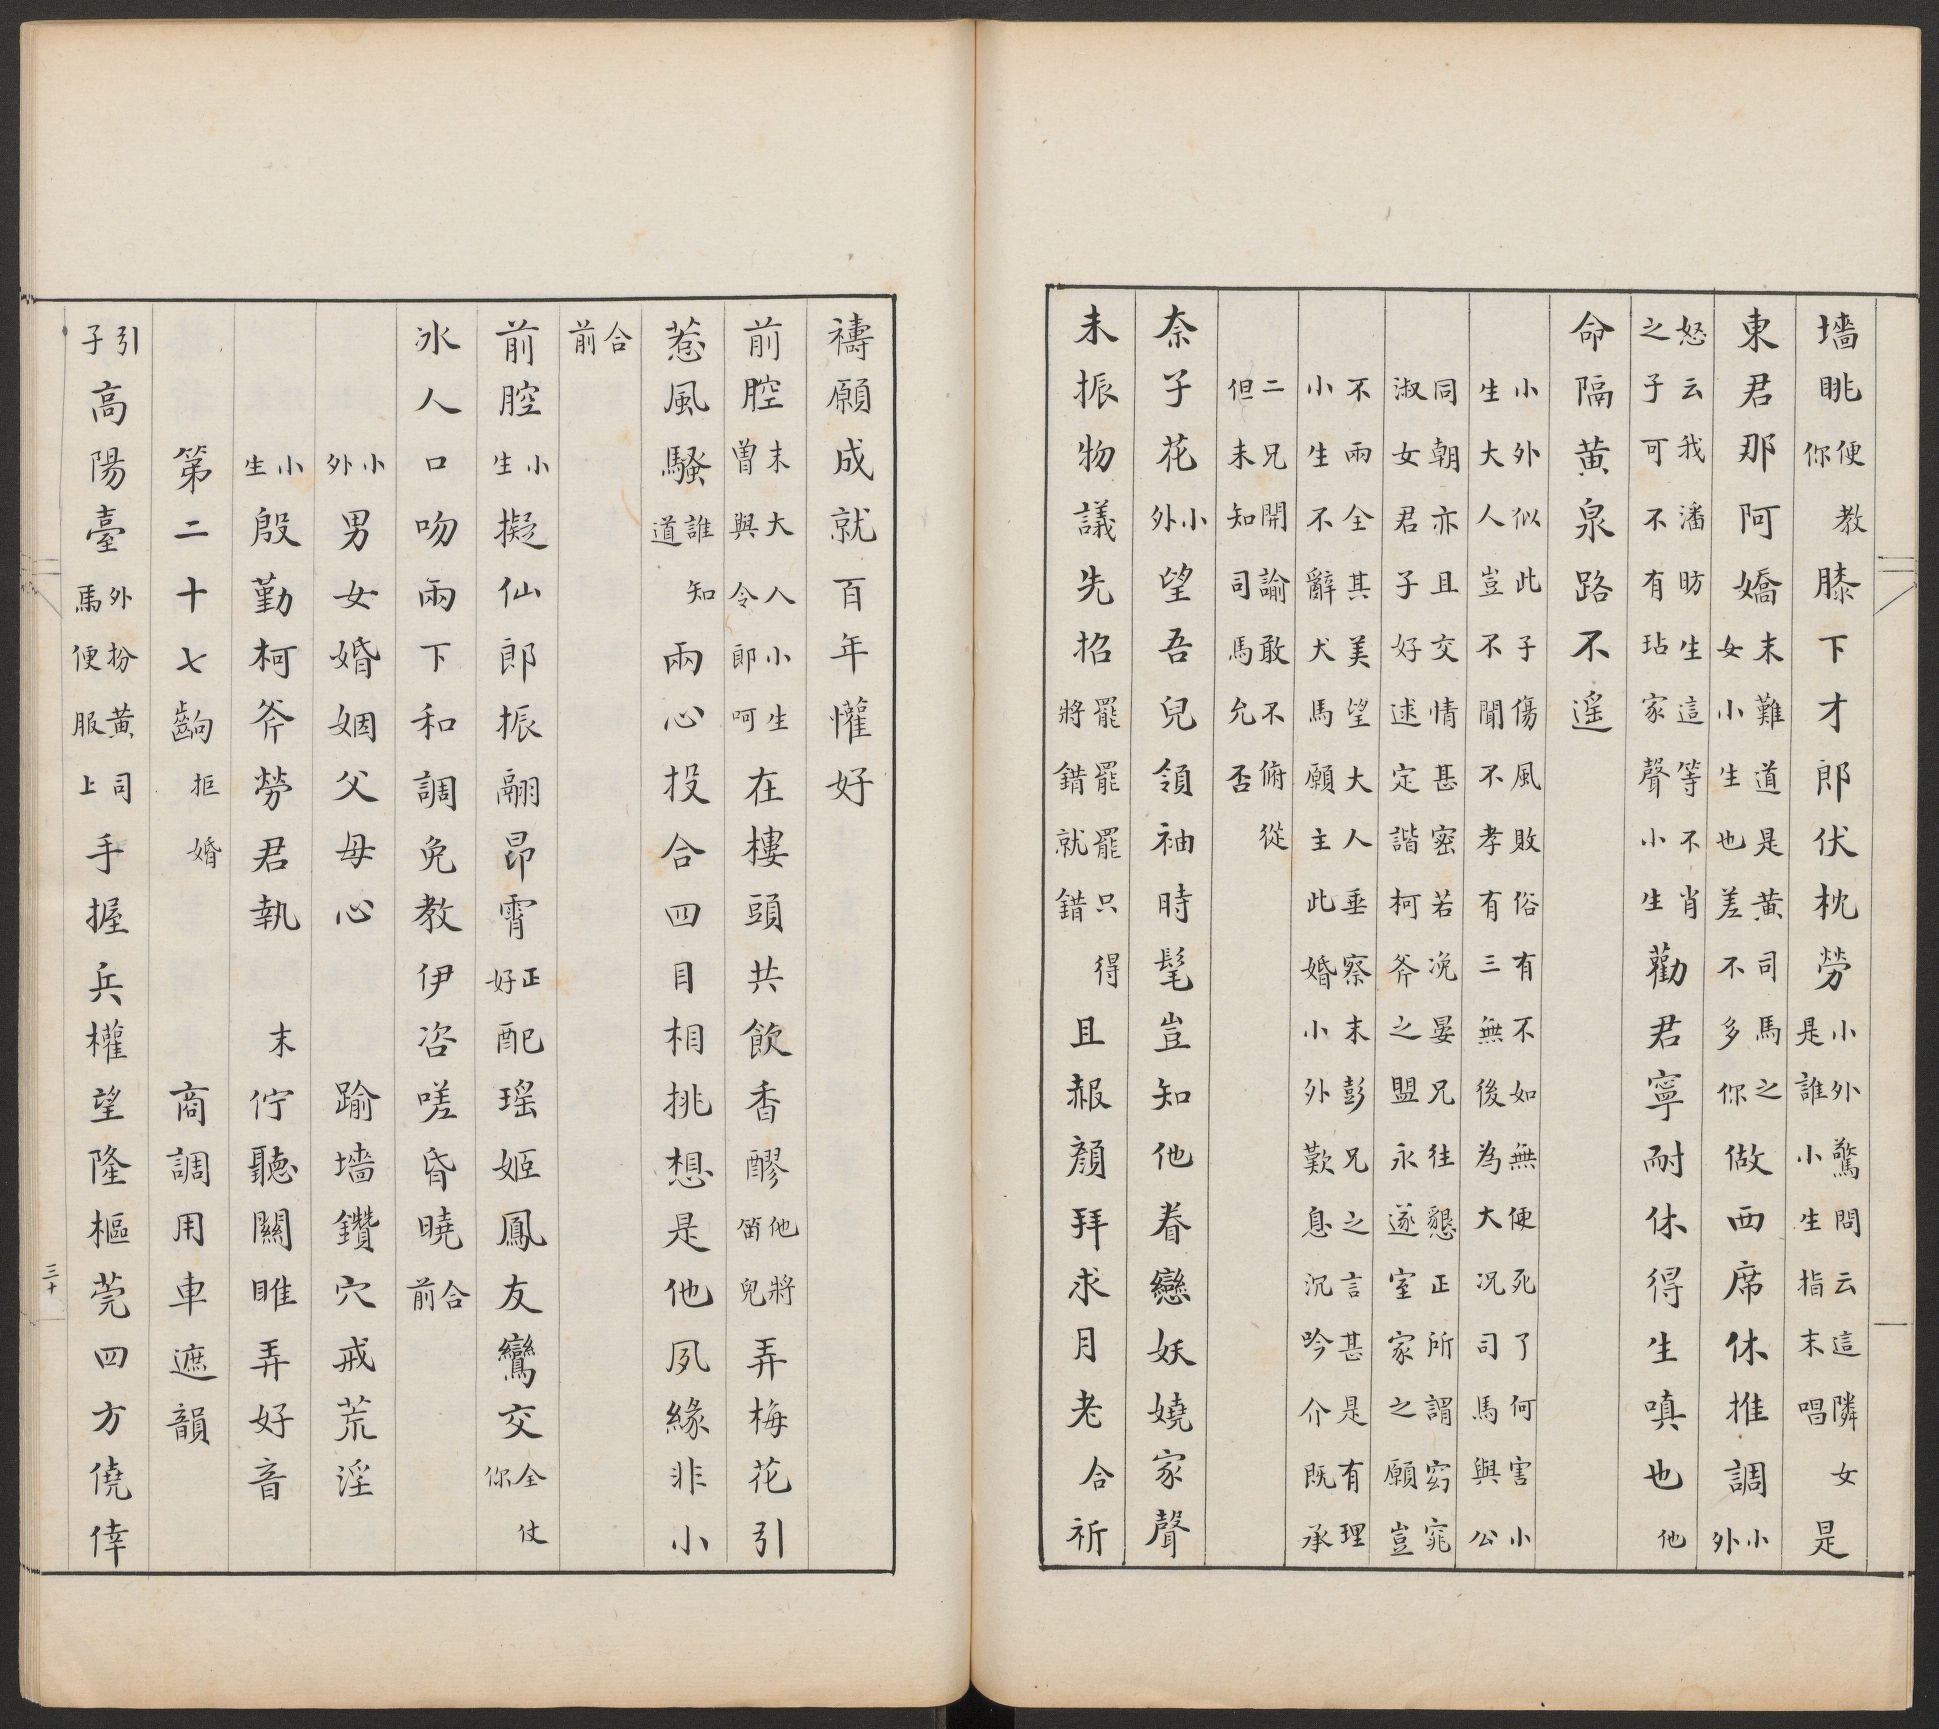 墻眺便你教膝下才郎伏枕勞小外驚問云這隣女是誰小生指末唱是
東君那阿嬌末難道是黃司馬之女小生也差不多你做西席休推調小外
怒云我潘昉生這等不肖之子可不有玷家聲小生勸君寧耐休得生嗔也他
命隔黃泉路不遥
小外似此子傷風敗俗有不如無便死了何害小生大人豈不聞不孝有三無後為大况司馬與公
同朝亦且交情甚密若况晏兄往懇正所謂窈窕淑女君子好逑定諧柯斧之盟永遂室家之願豈
不兩全其美望大人垂察末彭兄之言甚是有理小生不辭犬馬願主此婚小外歎息沉吟介既承
二兄開諭敢不俯從但未知司馬允否
奈子花小外望吾兒領袖時髦豈知他眷戀妖嬈家聲
未振物議先招罷罷罷只將錯就錯得且赧顏拜求月老合祈
禱願成就百年懽好
前腔末大人小生曽與令郎呵在樓頭共飲香醪他將笛兒弄梅花引
惹風騷誰道知兩心投合四目相挑想是他夙緣非小
合前
前腔小生擬仙郎振翮昂霄正好配瑤姬鳳友鸞交全仗你
氷人口吻兩下和調免教伊咨嗟昏曉合前
小外男女婚姻父母心　踰墻鑽穴戒荒淫
小生殷勤柯斧勞君執　末佇聽關雎弄好音
第二十七齣　拒婚　商調用車遮韻
引子高陽臺外扮黃司馬便服上手握兵權望隆樞莞四方僥倖
三十